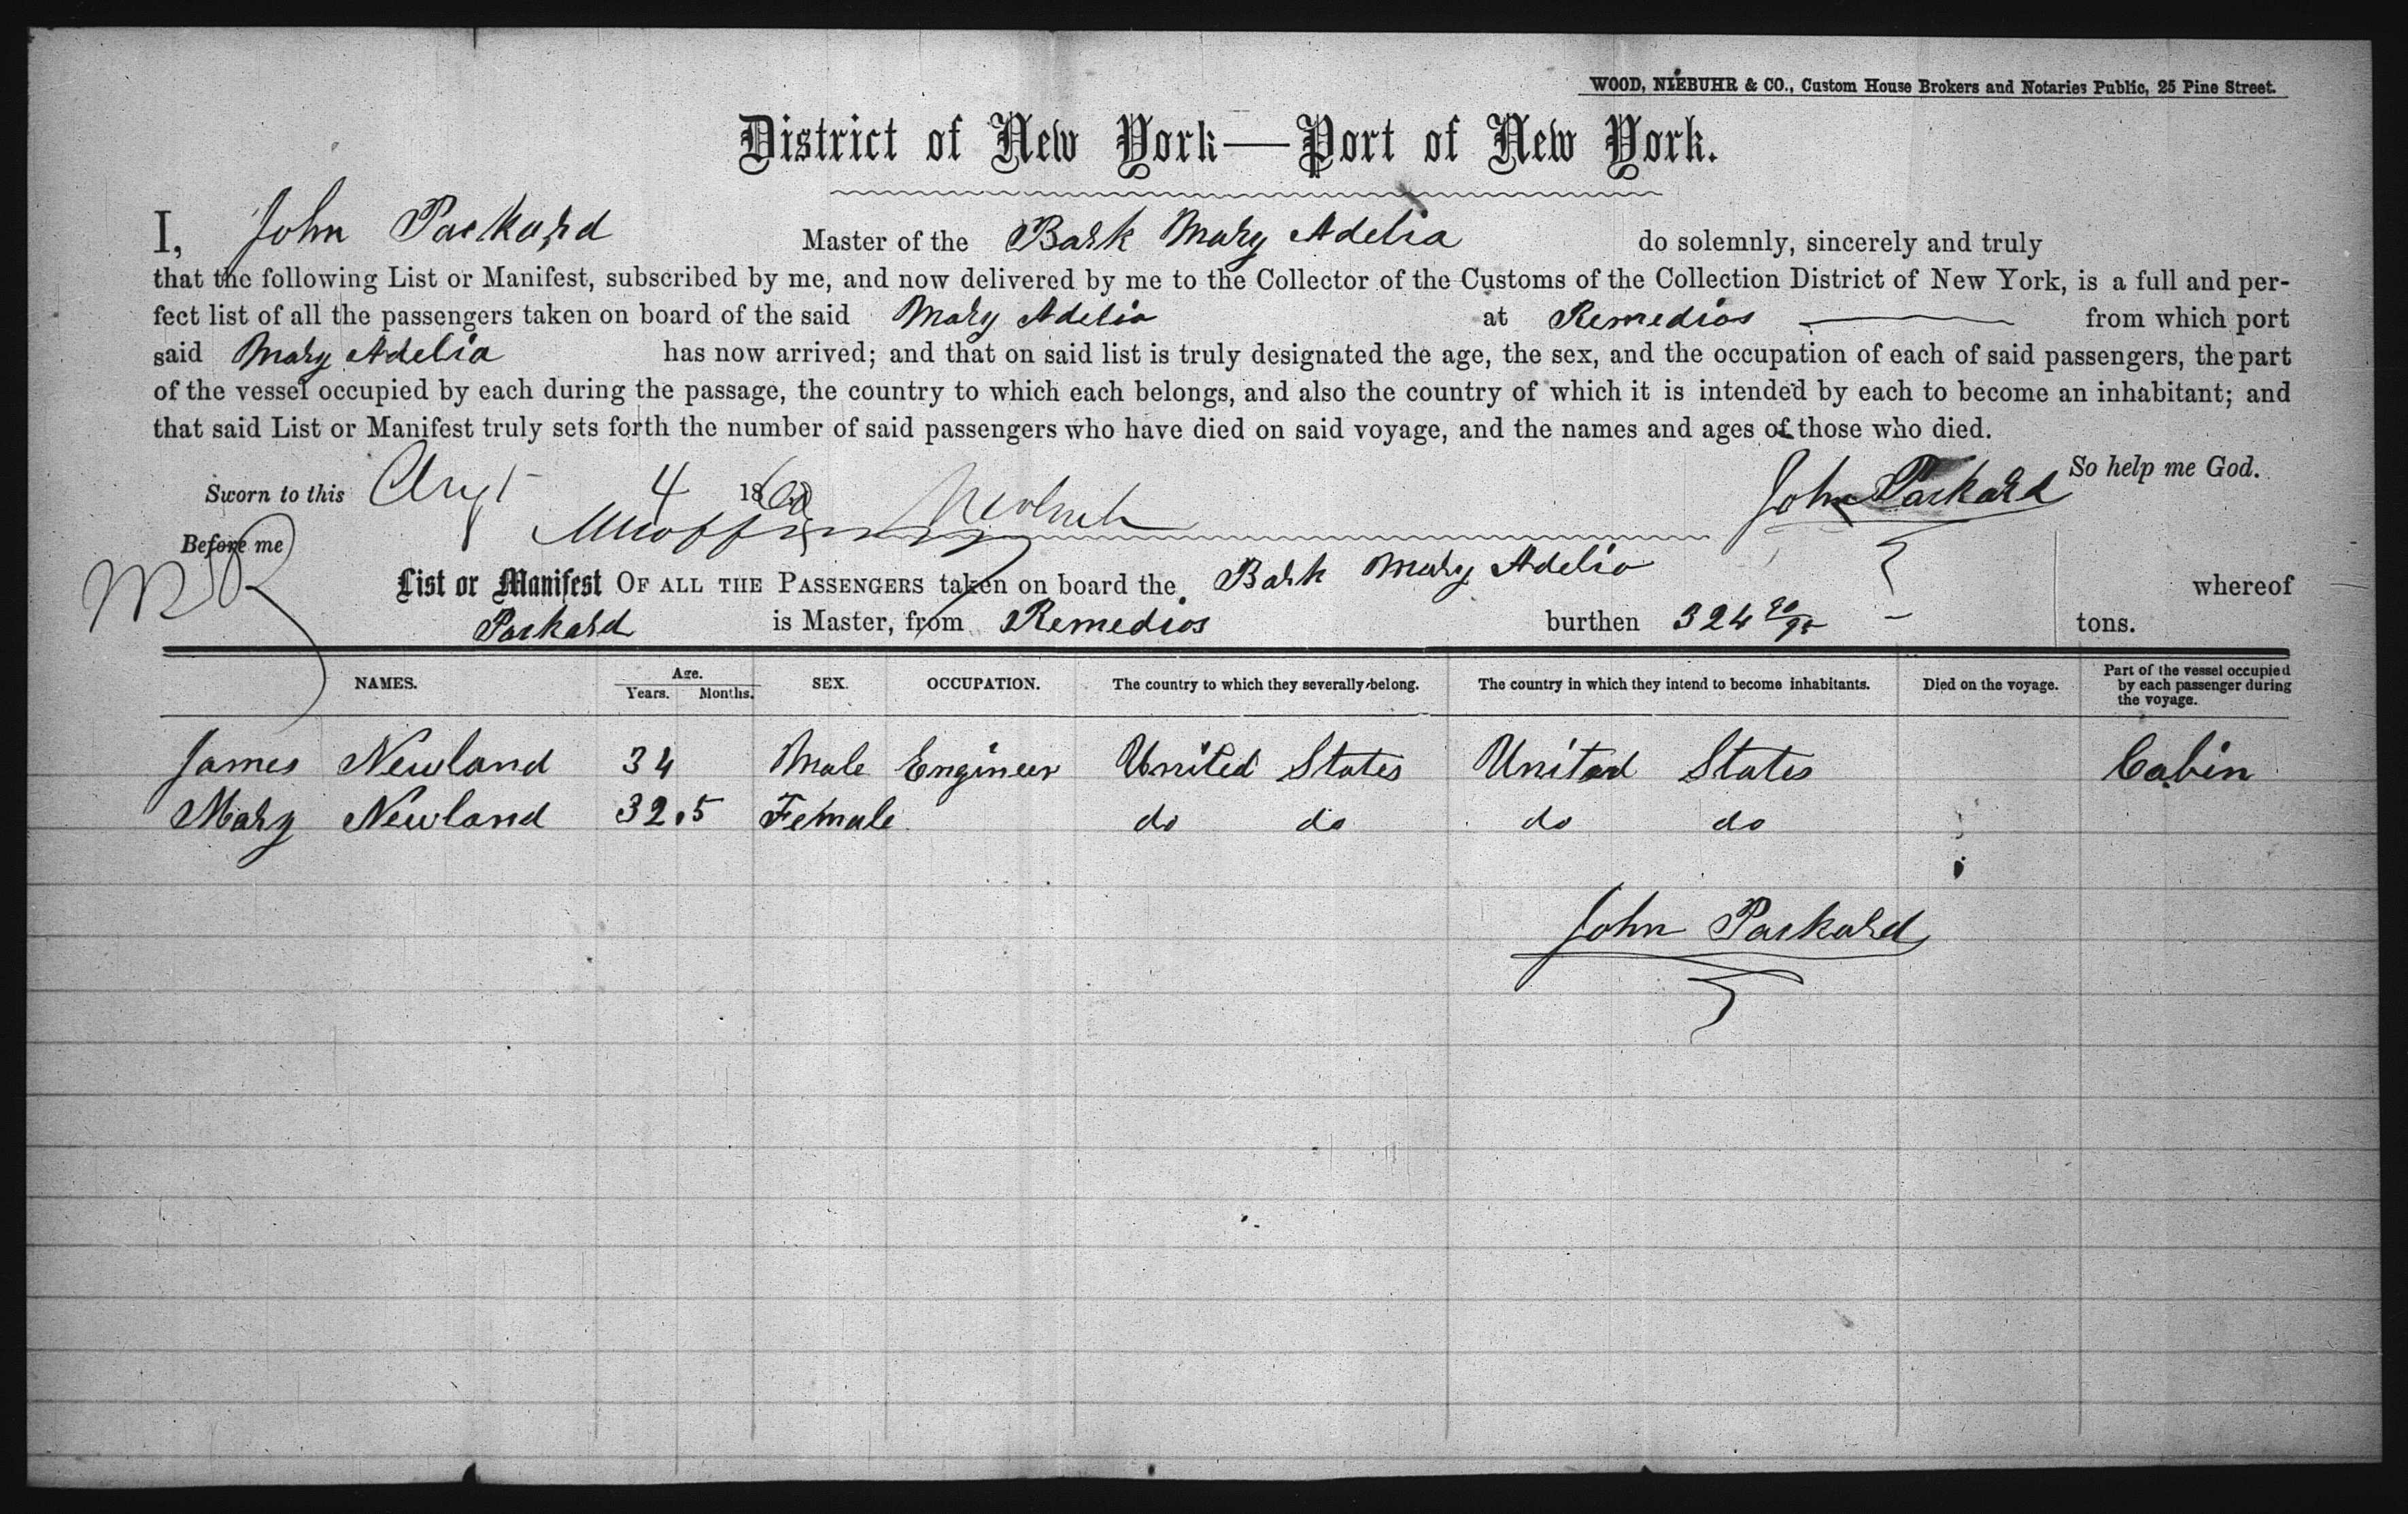 WOOD, NIEBUHR & CO., Custom House Brokers and Notaries Public, 25 Pine Street.
District of New York—Port of New York.
I, John Packard Master of the Bark Mary Adelia do solemnly, sincerely and truly
that the following List or Manifest, subscribed by me, and now delivered by me to the Collector of the Customs of the Collection District of New York, is a full and per-
fect list of all the passengers taken on board of the said Mary Adelia at Remedios from which port
said Mary Adelia has now arrived; and that on said list is truly designated the age, the sex, and the occupation of each of said passengers, the part
of the vessel occupied by each during the passage, the country to which each belongs, and also the country of which it is intended by each to become an inhabitant; and
that said List or Manifest truly sets forth the number of said passengers who have died on said voyage, and the names and ages of those who died.
So help me God.
Sworn to this Augt 4 186 John Packard
Before me
List or Manifest OF ALL THE PASSENGERS taken on board the Bark Mary Adelia whereof
Packard is Master, from Remedios burthen 324 90/95 tons.
NAMES. Age. Years. Months. SEX. OCCUPATION. The country to which they severally belong. The country in which they intend to become inhabitants. Died on the voyage. Part of the vessel occupied by each passenger during the voyage.
James Newland 34 Male Engineer United States United States Cabin
Mary Newland 32.5 Female do do do do
John Packard